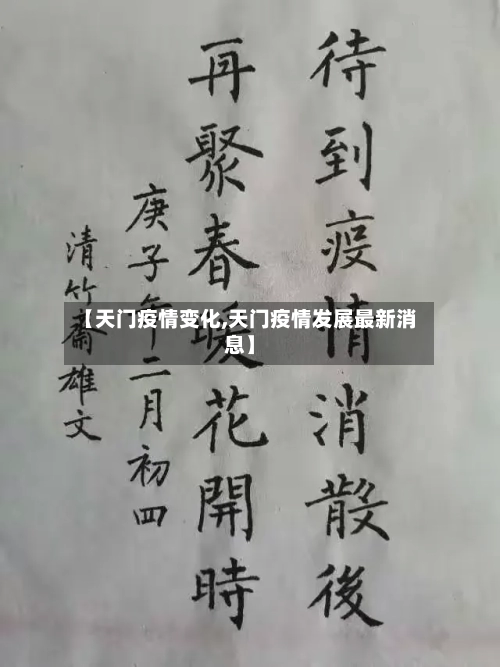 待到疫情消散後
再聚春暖花開時
庚子年二月初四
清竹齋雄文
【天门疫情变化,天门疫情发展最新消
息】